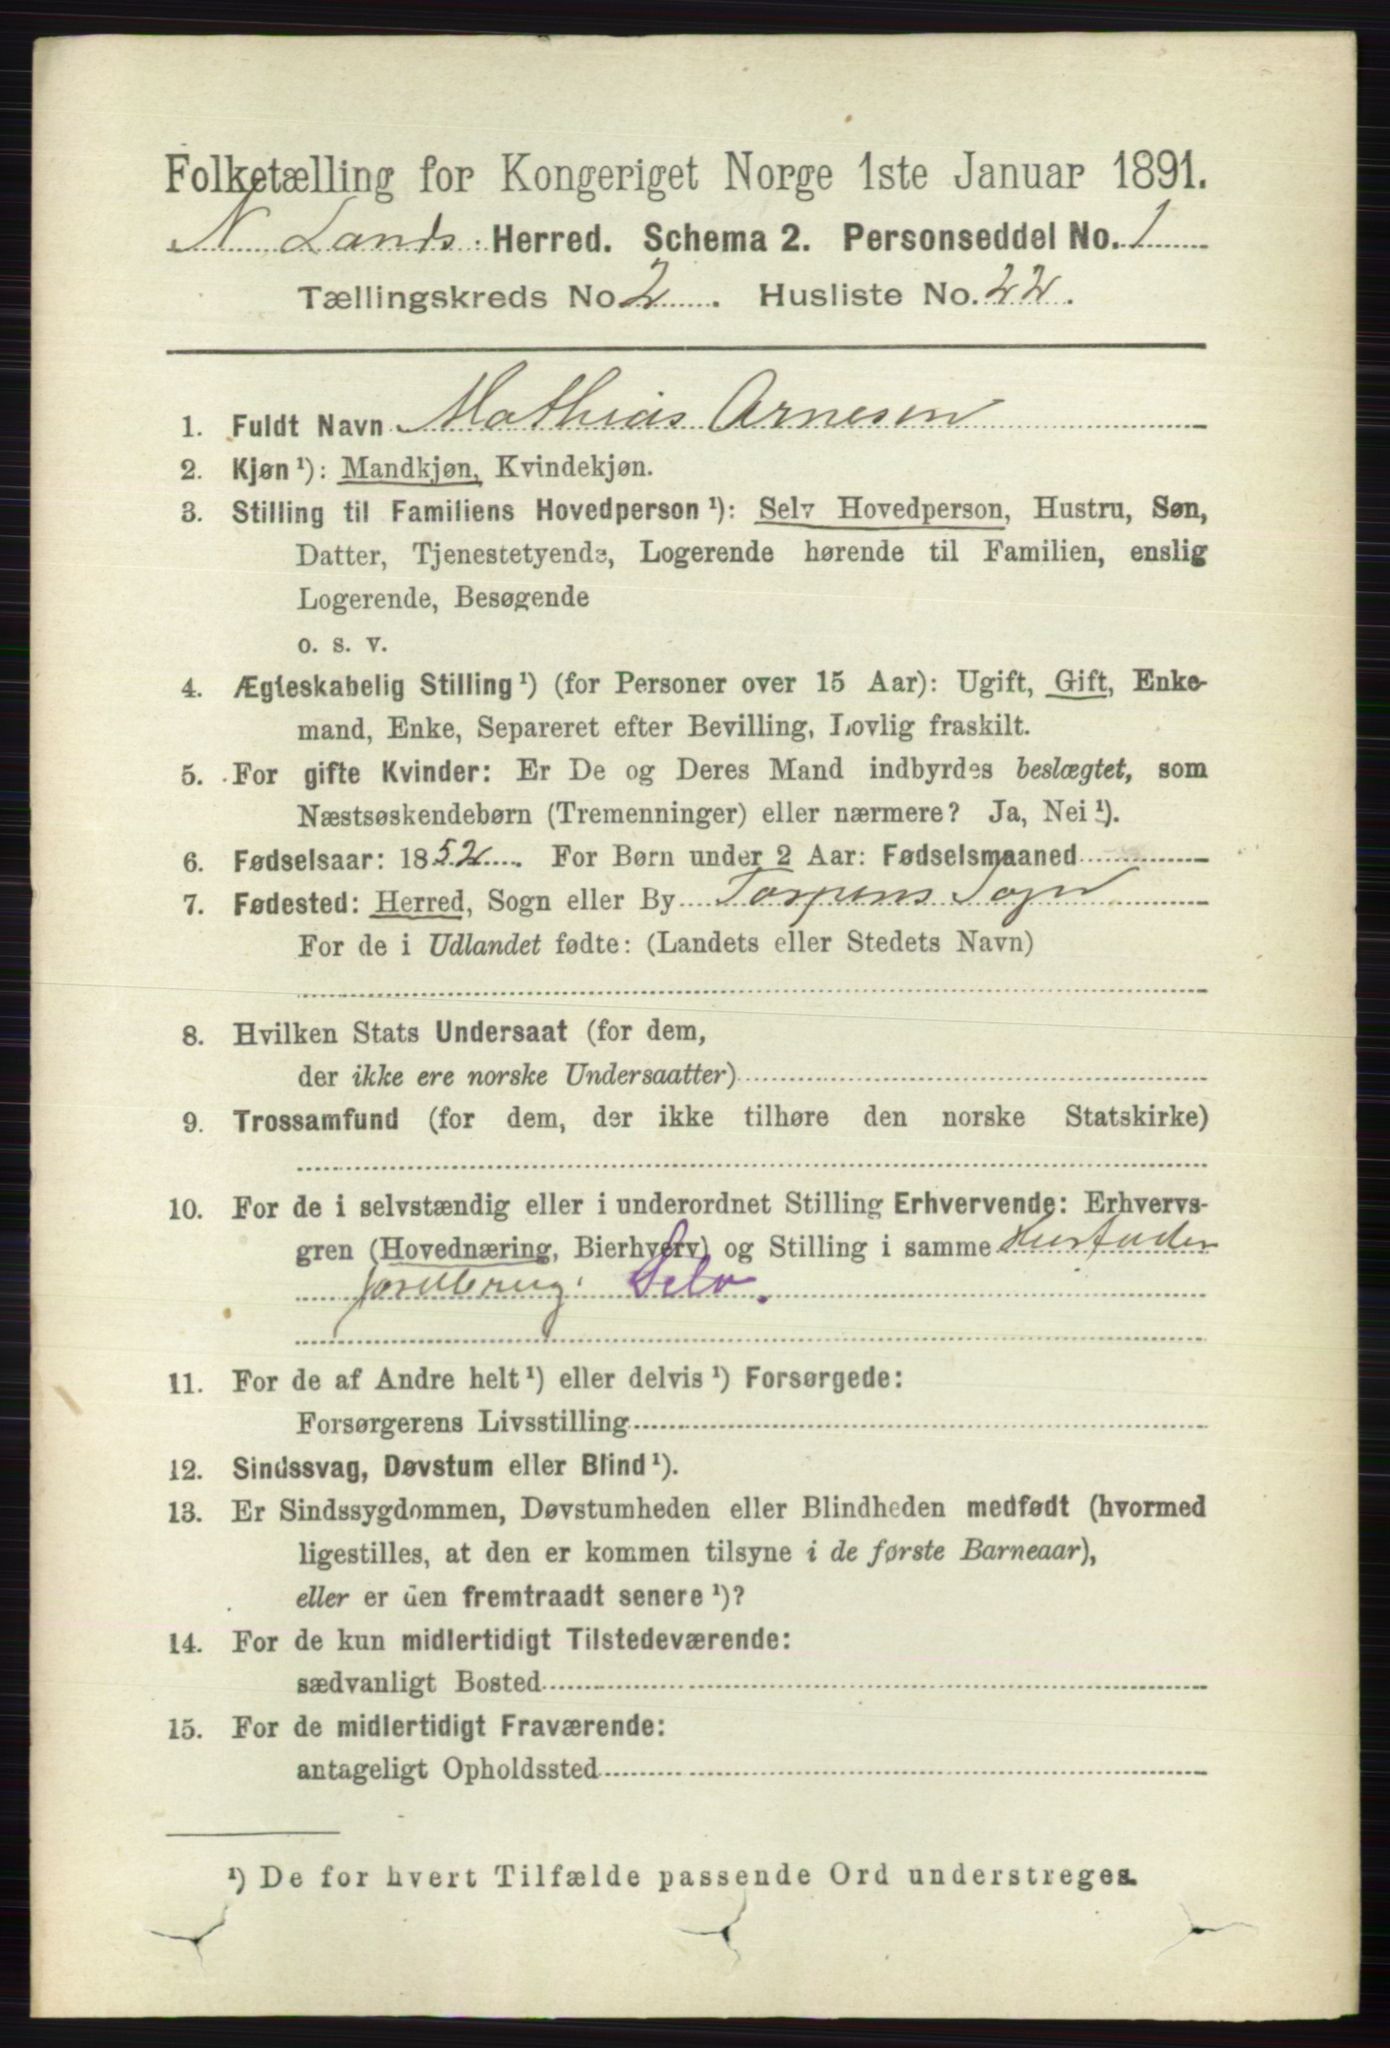 Folketælling for Kongeriget Norge 1ste Januar 1891.
N. Lands Herred. Schema 2. Personseddel No. 1
Tællingskreds No 2. Husliste No. 22.
1. Fuldt Navn Mathias Arnesen
2. Kjøn ¹): Mandkjøn, Kvindekjøn.
3. Stilling til Familiens Hovedperson ¹): Selv Hovedperson, Hustru, Søn,
Datter, Tjenestetyende, Logerende hørende til Familien, enslig
Logerende, Besøgende
o. s. v.
4. Ægteskabelig Stilling ¹) (for Personer over 15 Aar): Ugift, Gift, Enke-
mand, Enke, Separeret efter Bevilling, Lovlig fraskilt.
5. For gifte Kvinder: Er De og Deres Mand indbyrdes beslægtet, som
Næstsøskendebørn (Tremenninger) eller nærmere? Ja, Nei ¹).
6. Fødselsaar: 1852. For Børn under 2 Aar: Fødselsmaaned
7. Fødested: Herred, Sogn eller By Torpens Sogn
For de i Udlandet fødte: (Landets eller Stedets Navn)
8. Hvilken Stats Undersaat (for dem,
der ikke ere norske Undersaatter)
9. Trossamfund (for dem, der ikke tilhøre den norske Statskirke)
10. For de i selvstændig eller i underordnet Stilling Erhvervende: Erhvervs-
gren (Hovednæring, Bierhverv) og Stilling i samme
jordbrug. Selv.
11. For de af Andre helt ¹) eller delvis ¹) Forsørgede:
Forsørgerens Livsstilling
12. Sindssvag, Døvstum eller Blind ¹).
13. Er Sindssygdommen, Døvstumheden eller Blindheden medfødt (hvormed
ligestilles, at den er kommen tilsyne i de første Barneaar),
eller er den fremtraadt senere ¹)?
14. For de kun midlertidigt Tilstedeværende:
sædvanligt Bosted
15. For de midlertidigt Fraværende:
antageligt Opholdssted
¹) De for hvert Tilfælde passende Ord understreges.